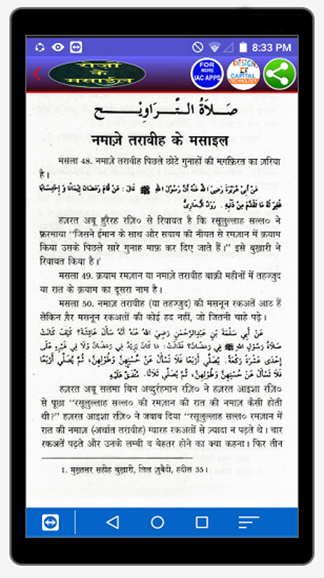 8:33 PM
रोज़ों
के
मसाईल
FOR
MORE
IAC APPS
DESIGN
BY
CAPITAL
TECHNOLOGIES
صَلَاةُ التَّرَاوِيْح
नमाज़े तरावीह के मसाइल
मसला 48. नमाज़े तरावीह पिछले छोटे गुनाहों की मग़फ़िरत का ज़रिया
है।
عَنْ أَبِي هُرَيْرَةَ رَضِيَ اللهُ عَنْهُ أَنَّ رَسُولَ اللهِ ﷺ قَالَ : مَنْ قَامَ رَمَضَانَ إِيْمَانًا وَ إِحْتِسَابًا
غُفِرَ لَهُ مَا تَقَدَّمَ مِنْ ذَنْبِهِ . رَوَاهُ الْبُخَارِيُّ
हज़रत अबू हुरैरह रज़ि० से रिवायत है कि रसूलुल्लाह सल्ल० ने
फ़रमाया "जिसने ईमान के साथ और सवाब की नीयत से रमज़ान में क़याम
किया उसके पिछले सारे गुनाह माफ़ कर दिए जाते हैं।" इसे बुख़ारी ने
रिवायत किया है।
मसला 49. क़याम रमज़ान या नमाज़े तरावीह बाक़ी महीनों में तहज्जुद
या रात के क़याम का दूसरा नाम है।
मसला 50. नमाज़े तरावीह (या तहज्जुद) की मसनून रकअतें आठ हैं
लेकिन ग़ैर मसनून रकअतों की कोई हद नहीं, जो जितनी चाहे पढ़े।
عَنْ أَبِي سَلَمَةَ بْنِ عَبْدِ الرَّحْمٰنِ رَضِيَ اللهُ عَنْهُ أَنَّهُ سَأَلَ عَائِشَةَ؟ كَيْفَ كَانَتْ
صَلَاةُ رَسُولِ اللهِ ﷺ فِي رَمَضَانَ؟ فَقَالَتْ : مَا كَانَ يَزِيْدُ فِي رَمَضَانَ وَلَا فِي غَيْرِهِ عَلَى
إِحْدَى عَشْرَةَ رَكْعَةً. يُصَلِّي أَرْبَعًا فَلَا تَسْأَلْ عَنْ حُسْنِهِنَّ وَطُولِهِنَّ، ثُمَّ يُصَلِّي أَرْبَعًا
فَلَا تَسْأَلْ عَنْ حُسْنِهِنَّ وَطُولِهِنَّ، ثُمَّ يُصَلِّي ثَلَاثًا. مُتَّفَقٌ عَلَيْهِ
हज़रत अबू सलमा बिन अब्दुर्रहमान रज़ि० ने हज़रत आइशा रज़ि०
से पूछा "रसूलुल्लाह सल्ल० की रमज़ान की रात की नमाज़ कैसी होती
थी?" हज़रत आइशा रज़ि० ने जवाब दिया "रसूलुल्लाह सल्ल० रमज़ान में
रात की नमाज़ (अर्थात तरावीह) ग्यारह रकअतों से ज़्यादा न पढ़ते थे। चार
रकअतें पढ़ते और उनके लम्बी व बेहतर होने का क्या कहना। फिर तीन
1. मुख़्तसर सहीह बुख़ारी, लिल ज़ुबैदी, हदीस 35।